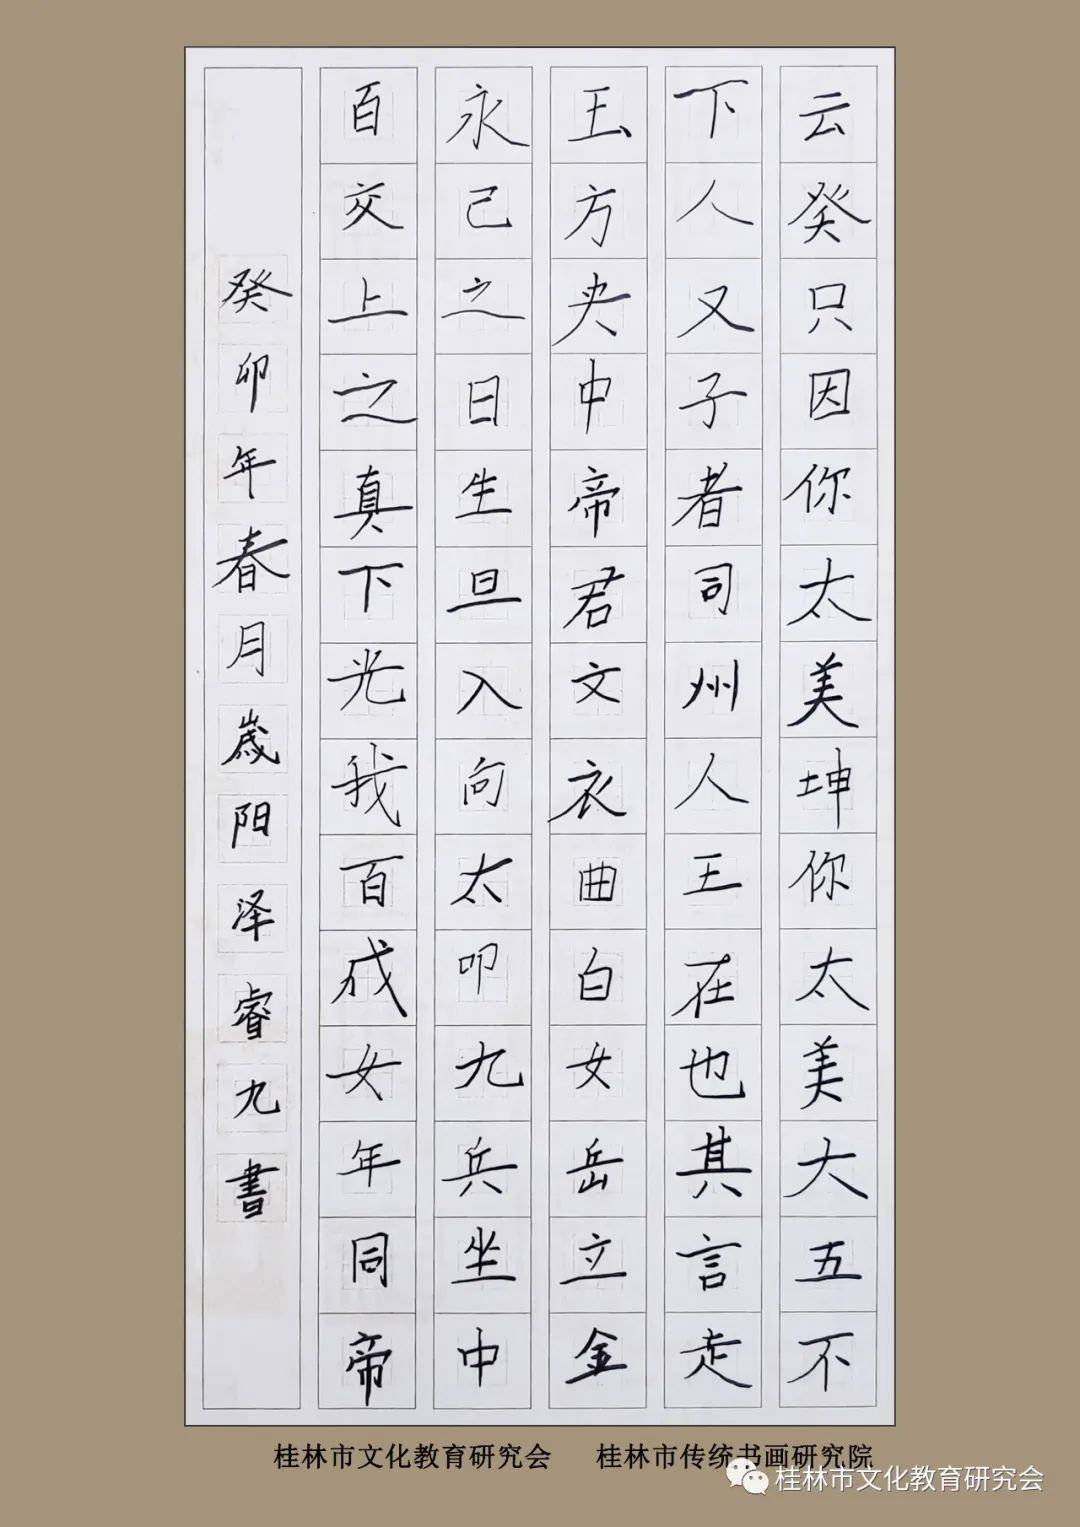 云癸只因你太美坤你太美大五不
下人又子者司州人王在也其言走
玉方夬中帝君文衣曲白女岳立金
永己之日生旦入向太叩九兵坐中
百交上之真下光我百成女年同帝
癸卯年春月嵗阳泽睿九書
桂林市文化教育研究会 桂林市传统书画研究院
桂林市文化教育研究会